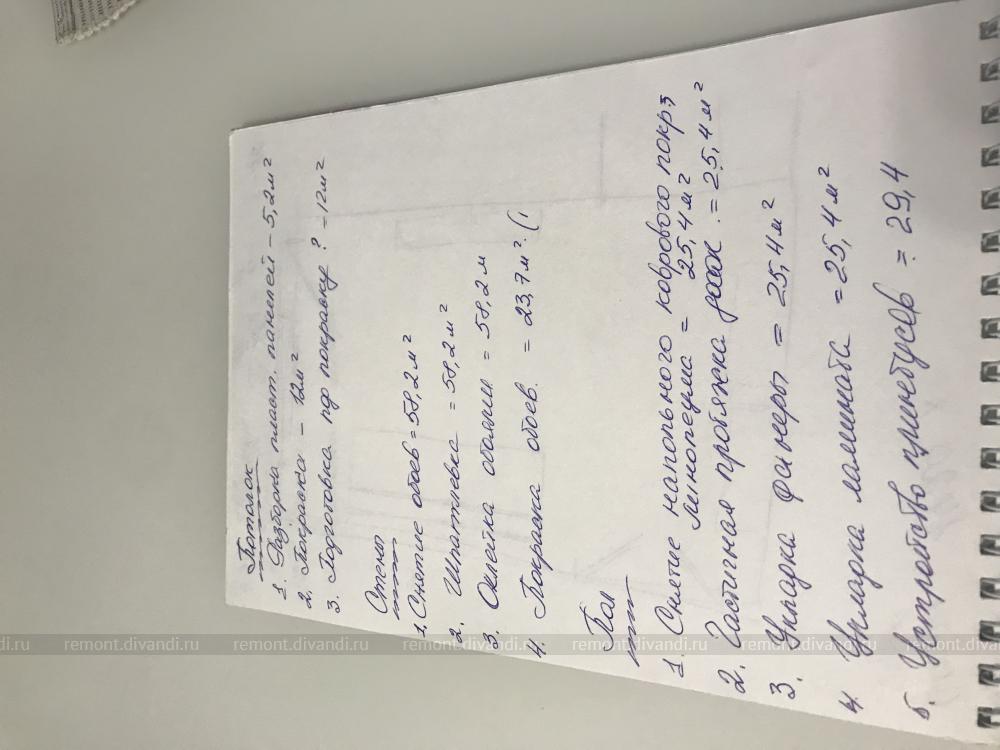 Потолок
1. Разборка пласт. панелей – 5,2м²
2. Покраска – 12м²
3. Подготовка под покраску ? – 12м²
Стены
1. Снятие обоев = 58,2м²
2. Шпатлевка = 58,2м²
3. Оклейка обоями = 58,2м
4. Покраска обоев. = 23,7м².
Пол
1. Снятие напольного коврового покр
линолеума = 25,4м²
2. Частичная протяжка досок = 25,4м²
3. Укладка фанеры = 25,4м²
4. Укладка ламината = 25,4м²
5. Устройство = 29,4
remont.divandi.ru remont.divandi.ru remont.divandi.ru remont.divandi.ru remont.divandi.ru remont.divandi.ru